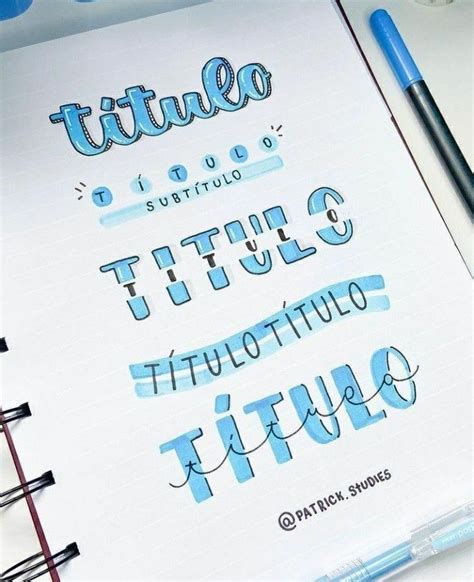 título
TÍTULO
SUBTÍTULO
TITULO
TITULO
TÍTULO TÍTULO
TÍTULO
título
@PATRICK.STUDIES